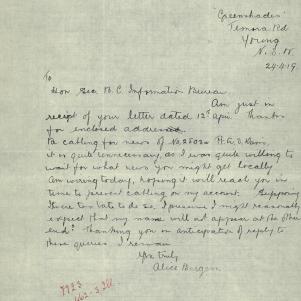 "Greenshades"
Temora Rd
Young
N.S.W.
24.4.19.
To
Hon Sec R.C Information Bureau
Am just in
receipt of your letter dated 12th April. Thanks
for enclosed address
Re cabling for news of No.
it is quite unnecessary, as I was quite willing to
wait for what news you might get locally
Am writing today, hoping it will reach you in
time to prevent cabling on my account. Supposing
I were too late to do so, I presume I might reasonably
expect that my name will not appear at the other
end? Thanking you in anticipation of reply to
these queries I remain
Yrs truly
Alice